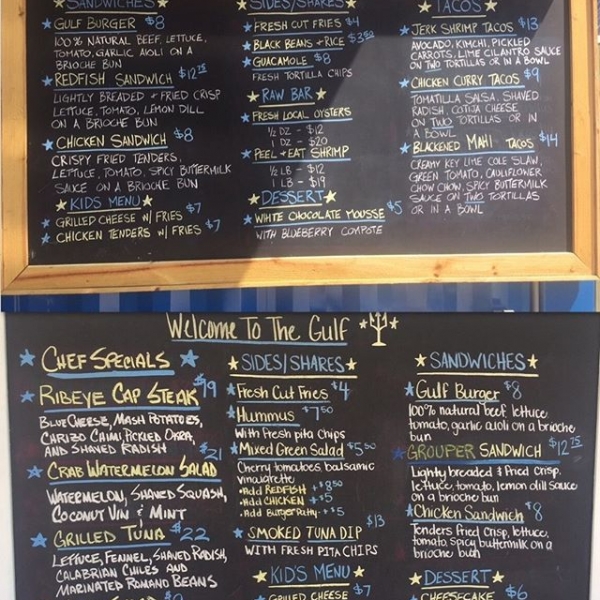 SANDWICHES
GULF BURGER $8
100% NATURAL BEEF, LETTUCE,
TOMATO, GARLIC AIOLI ON A
BRIOCHE BUN
REDFISH SANDWICH $12.75
LIGHTLY BREADED + FRIED CRISP
LETTUCE, TOMATO, LEMON DILL
ON A BRIOCHE BUN
CHICKEN SANDWICH $8
CRISPY FRIED TENDERS,
LETTUCE, TOMATO, SPICY BUTTERMILK
SAUCE ON A BRIOCHE BUN
KIDS MENU
GRILLED CHEESE W/ FRIES $7
CHICKEN TENDERS W/ FRIES $7
SIDES/SHARES
FRESH CUT FRIES $4
BLACK BEANS + RICE
GUACAMOLE $8
FRESH TORTILLA CHIPS
RAW BAR
FRESH LOCAL OYSTERS
1/2 DZ - $12
1 DZ - $20
PEEL + EAT SHRIMP
1/2 LB - $12
1 LB - $19
DESSERT
WHITE CHOCOLATE MOUSSE $5
WITH BLUEBERRY COMPOTE
TACOS
JERK SHRIMP TACOS $13
AVOCADO, KIMCHI, PICKLED
CARROTS, LIME CILANTRO SAUCE
ON TWO TORTILLAS OR IN A BOWL
CHICKEN CURRY TACOS $9
TOMATILLA SALSA, SHAVED
RADISH, COTIJA CHEESE
ON TWO TORTILLAS OR IN
A BOWL
BLACKENED MAHI TACOS $14
CREAMY KEY LIME COLE SLAW,
GREEN TOMATO, CAULIFLOWER
CHOW CHOW, SPICY BUTTERMILK
SAUCE ON TWO TORTILLAS
OR IN A BOWL
Welcome To The Gulf
CHEF SPECIALS
RIBEYE CAP STEAK $19
BLUE CHEESE, MASH POTATOES,
CHARIZO CHIMI, PICKLED OKRA,
AND SHAVED RADISH
CRAB WATERMELON SALAD $21
WATERMELON, SHAVED SQUASH,
COCONUT VIN & MINT
GRILLED TUNA $22
LETTUCE, FENNEL, SHAVED RADISH,
CALABRIAN CHILES AND
MARINATED ROMANO BEANS
SIDES/SHARES
Fresh Cut Fries $4
Hummus $7.50
With fresh pita Chips
Mixed Green Salad $5.50
Cherry tomatoes balsamic
vinaigrette
• Add REDFISH +$8.50
• Add CHICKEN +$5
• Add Burger Patty +$5
SMOKED TUNA DIP $13
WITH FRESH PITA CHIPS
KID'S MENU
GRILLED CHEESE $7
SANDWICHES
Gulf Burger $8
100% natural beef lettuce,
tomato, garlic aioli on a brioche
bun
GROUPER SANDWICH $12.75
Lightly breaded & Fried Crisp,
lettuce, tomato, lemon dill sauce
on a brioche bun
Chicken Sandwich $8
Tenders fried Crisp, lettuce,
tomato, spicy buttermilk on a
brioche bun
DESSERT
CHEESECAKE $6